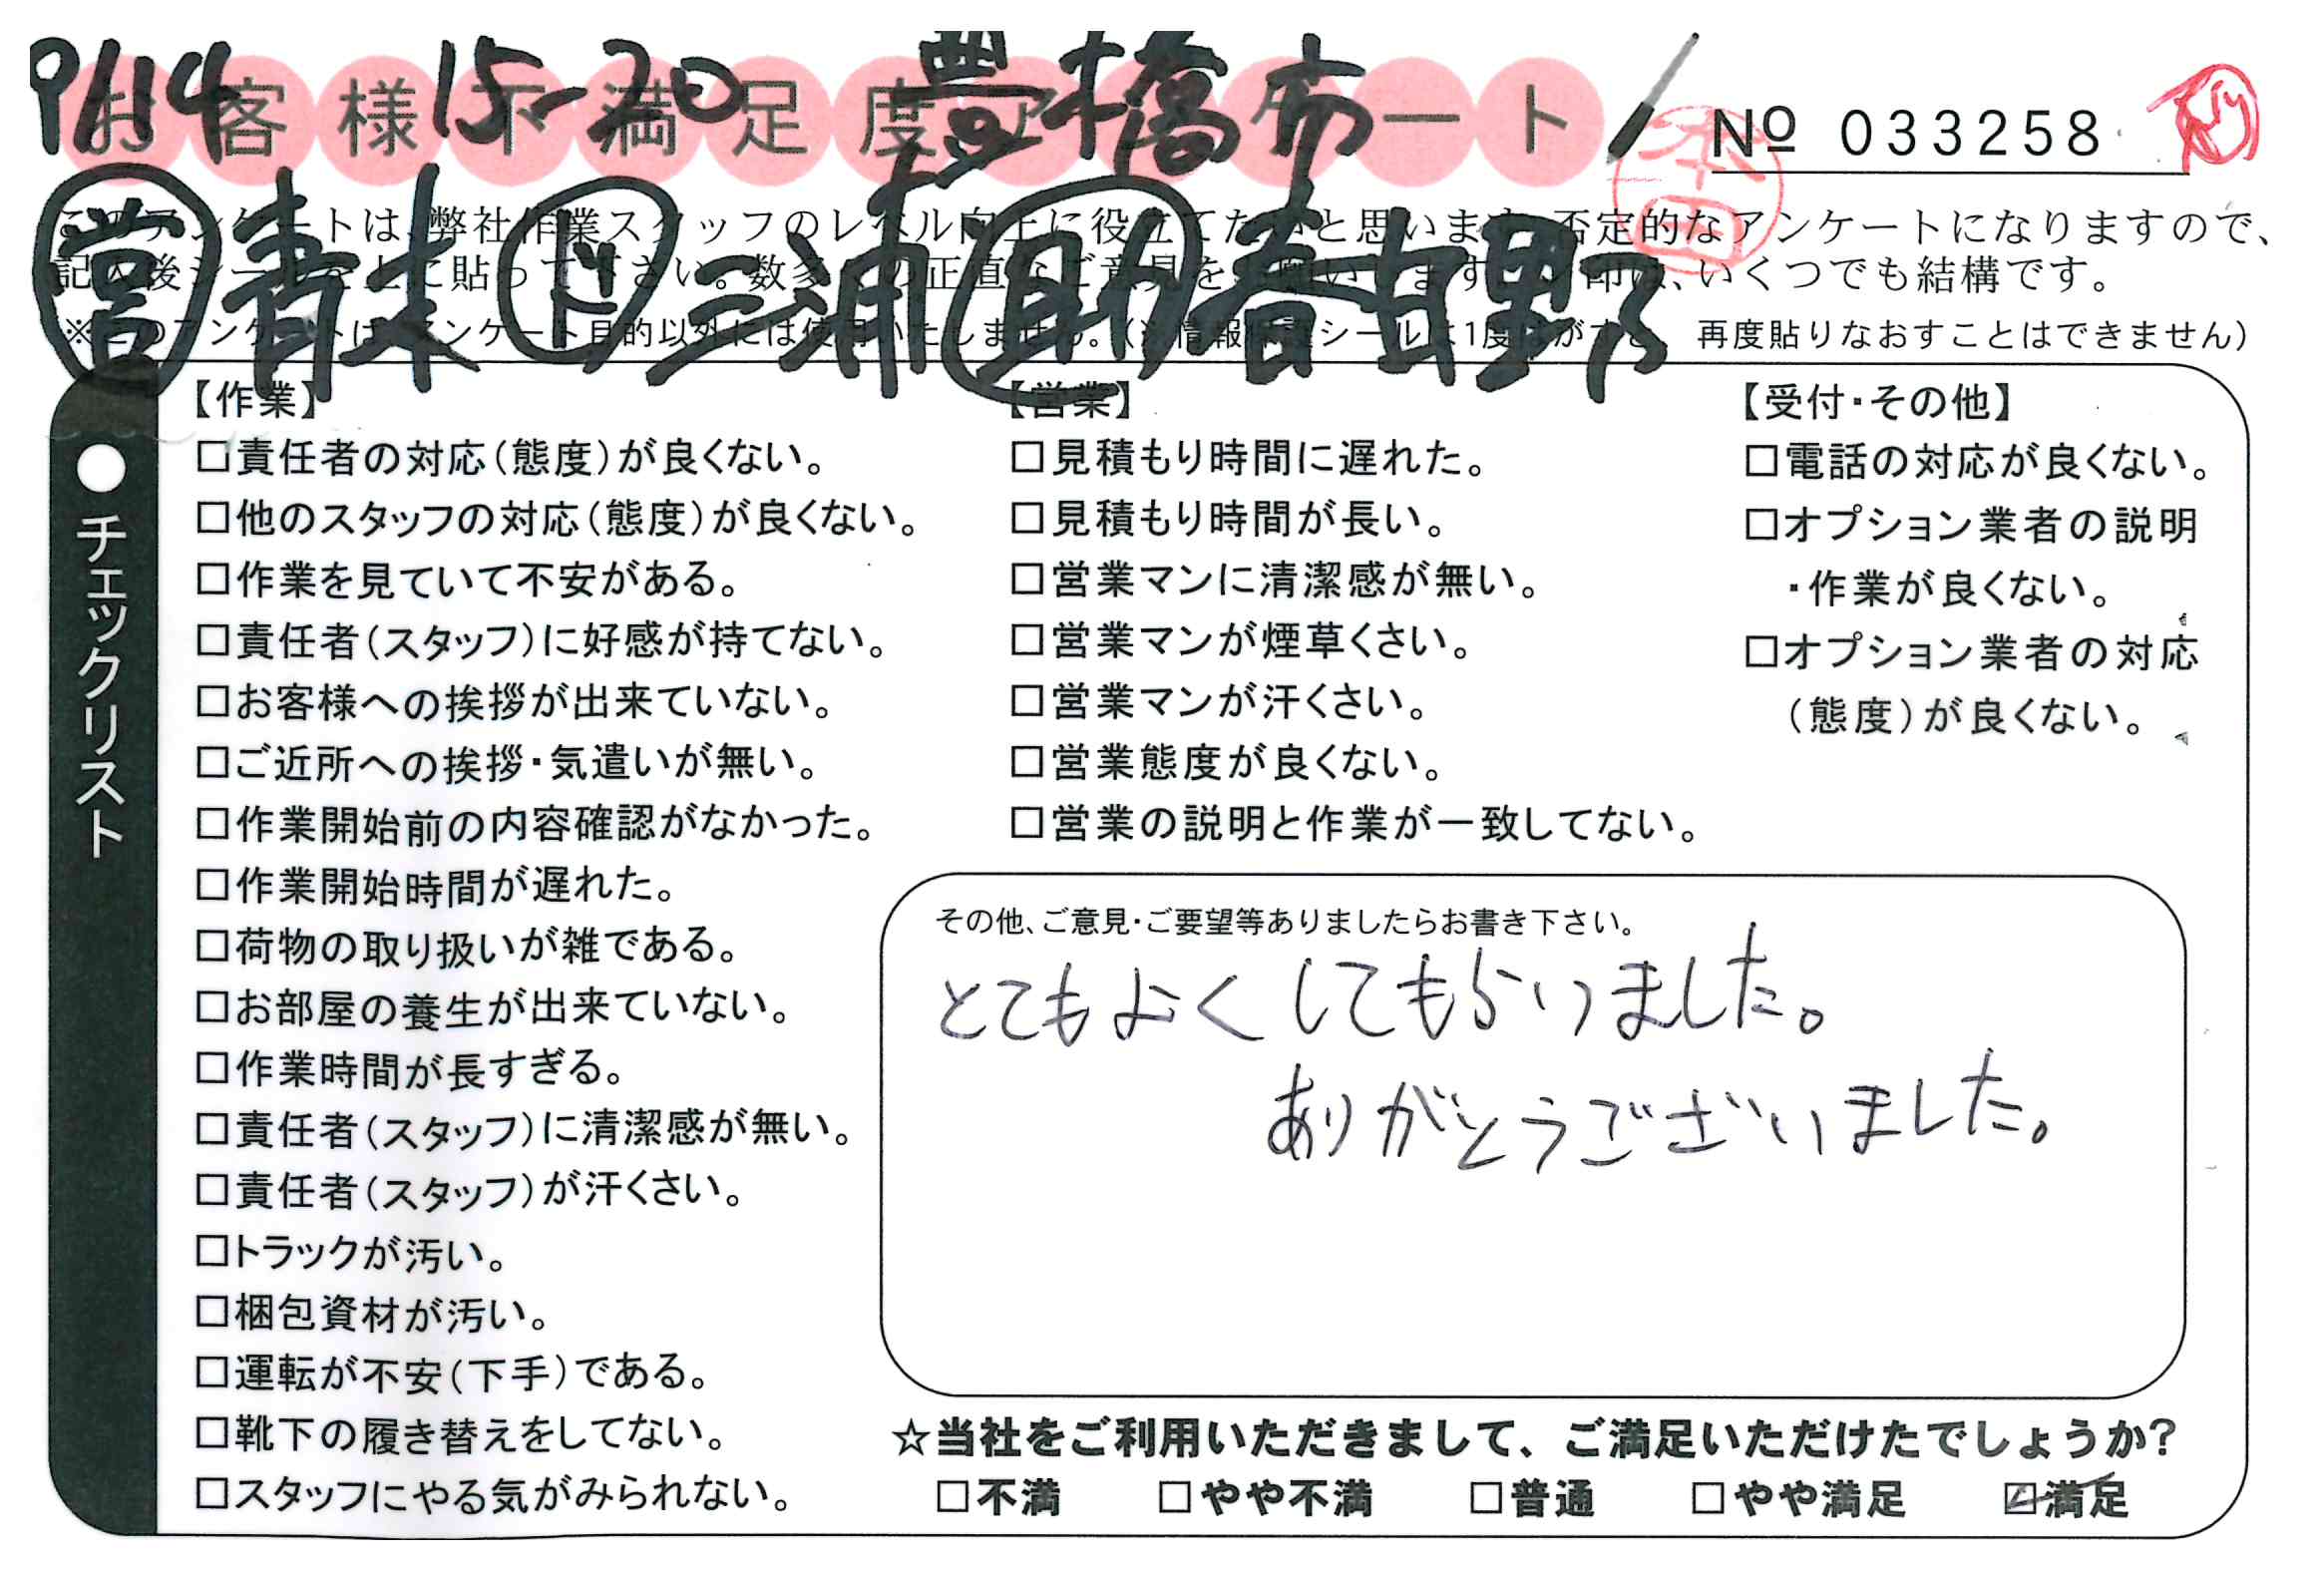 9/14 15-20 豊橋市
お客様不満足度アンケート
No 033258
営 青木 ド 三浦 助 春日野
このアンケートは、弊社作業スタッフのレベル向上に役立てたいと思います。否定的なアンケートになりますので、
記入後シールを上に貼って下さい。数多くの正直なご意見をお願いします。レ印は、いくつでも結構です。
(※このアンケートは、アンケート目的以外には使用いたしません。(※情報保護シールは1度はがすと、再度貼りなおすことはできません)
●チェックリスト
【作業】
□責任者の対応(態度)が良くない。
□他のスタッフの対応(態度)が良くない。
□作業を見ていて不安がある。
□責任者(スタッフ)に好感が持てない。
□お客様への挨拶が出来ていない。
□ご近所への挨拶・気遣いが無い。
□作業開始前の内容確認がなかった。
□作業開始時間が遅れた。
□荷物の取り扱いが雑である。
□お部屋の養生が出来ていない。
□作業時間が長すぎる。
□責任者(スタッフ)に清潔感が無い。
□責任者(スタッフ)が汗くさい。
□トラックが汚い。
□梱包資材が汚い。
□運転が不安(下手)である。
□靴下の履き替えをしてない。
□スタッフにやる気がみられない。
【営業】
□見積もり時間に遅れた。
□見積もり時間が長い。
□営業マンに清潔感が無い。
□営業マンが煙草くさい。
□営業マンが汗くさい。
□営業態度が良くない。
□営業の説明と作業が一致してない。
【受付・その他】
□電話の対応が良くない。
□オプション業者の説明
・作業が良くない。
□オプション業者の対応
(態度)が良くない。
その他、ご意見・ご要望等ありましたらお書き下さい。
とてもよくしてもらいました。
ありがとうございました。
☆当社をご利用いただきまして、ご満足いただけたでしょうか?
□不満 □やや不満 □普通 □やや満足 ☑満足